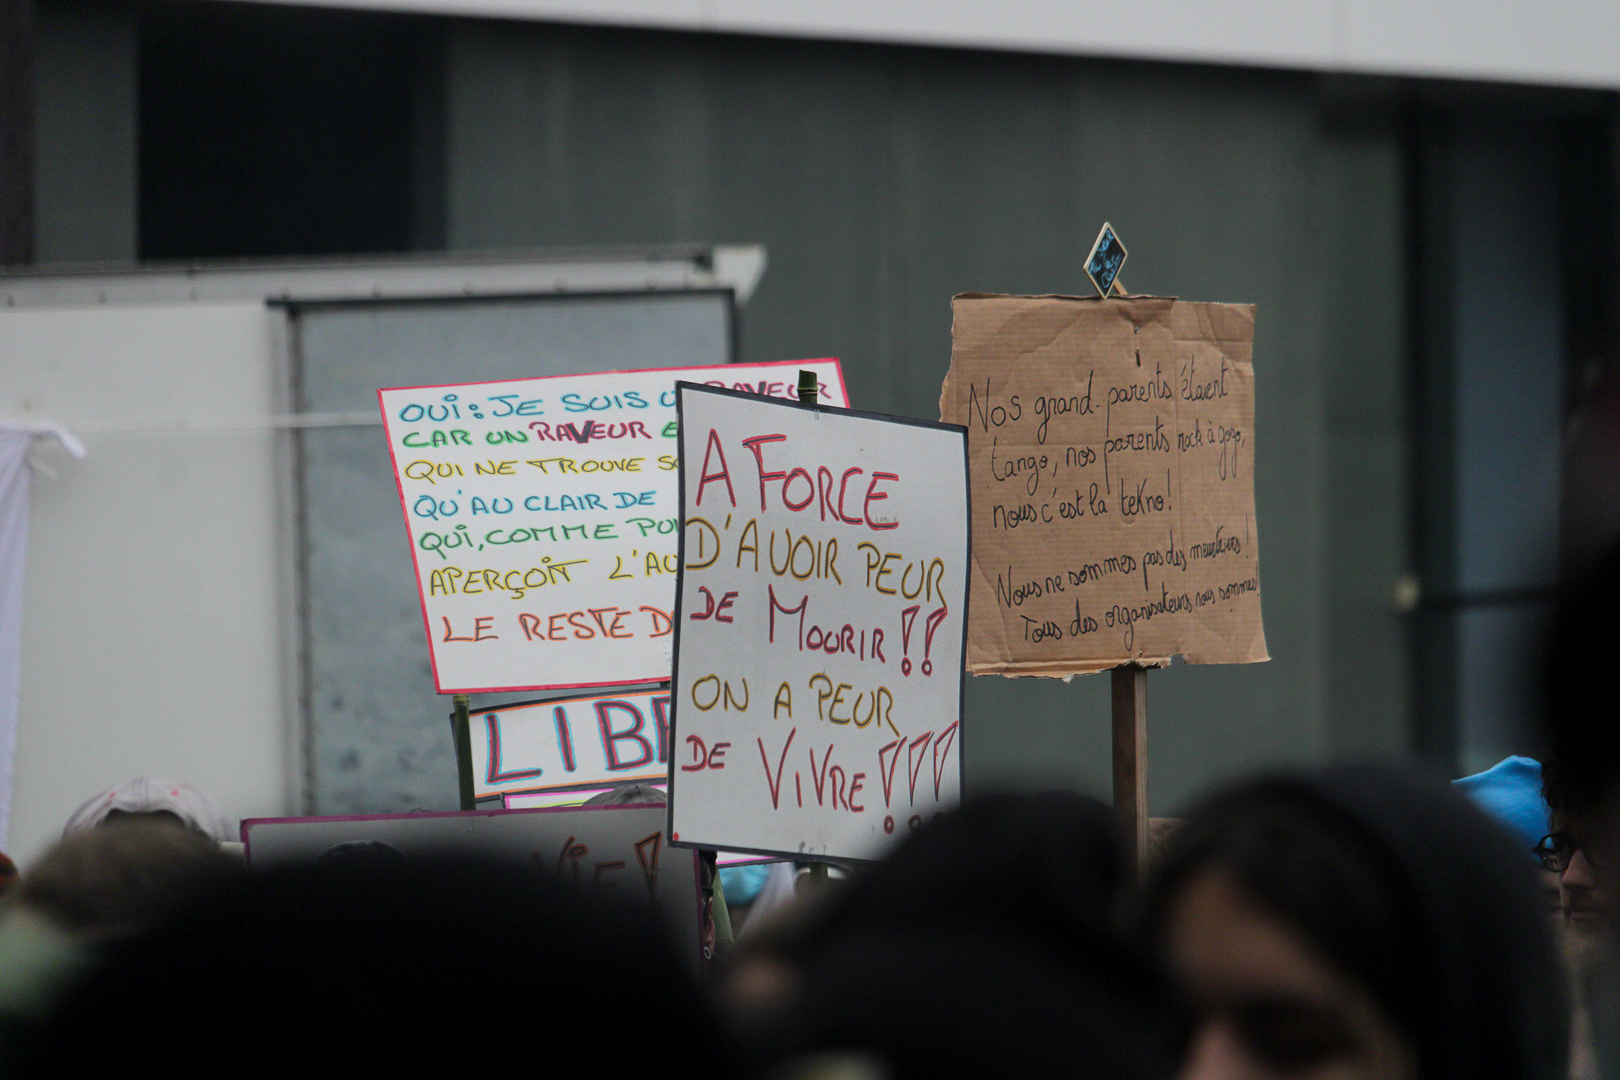 OUi: JE SUIS
RAVEUR
CAR UN RAVEUR
QUI NE TROUVE
QU'AU CLAIR DE
QUi, COMME
APERÇOIT
LE RESTE
A FORCE
D'AVOIR PEUR
DE MOURIR!!
ON A PEUR
DE ViVRE!!!
Nos grand-parents étaient
tango, nos parents rock à gogo,
nous c'est la teKno!
Nous ne sommes pas des meurtriers!
Tous des organisateurs nous sommes!
ViE!